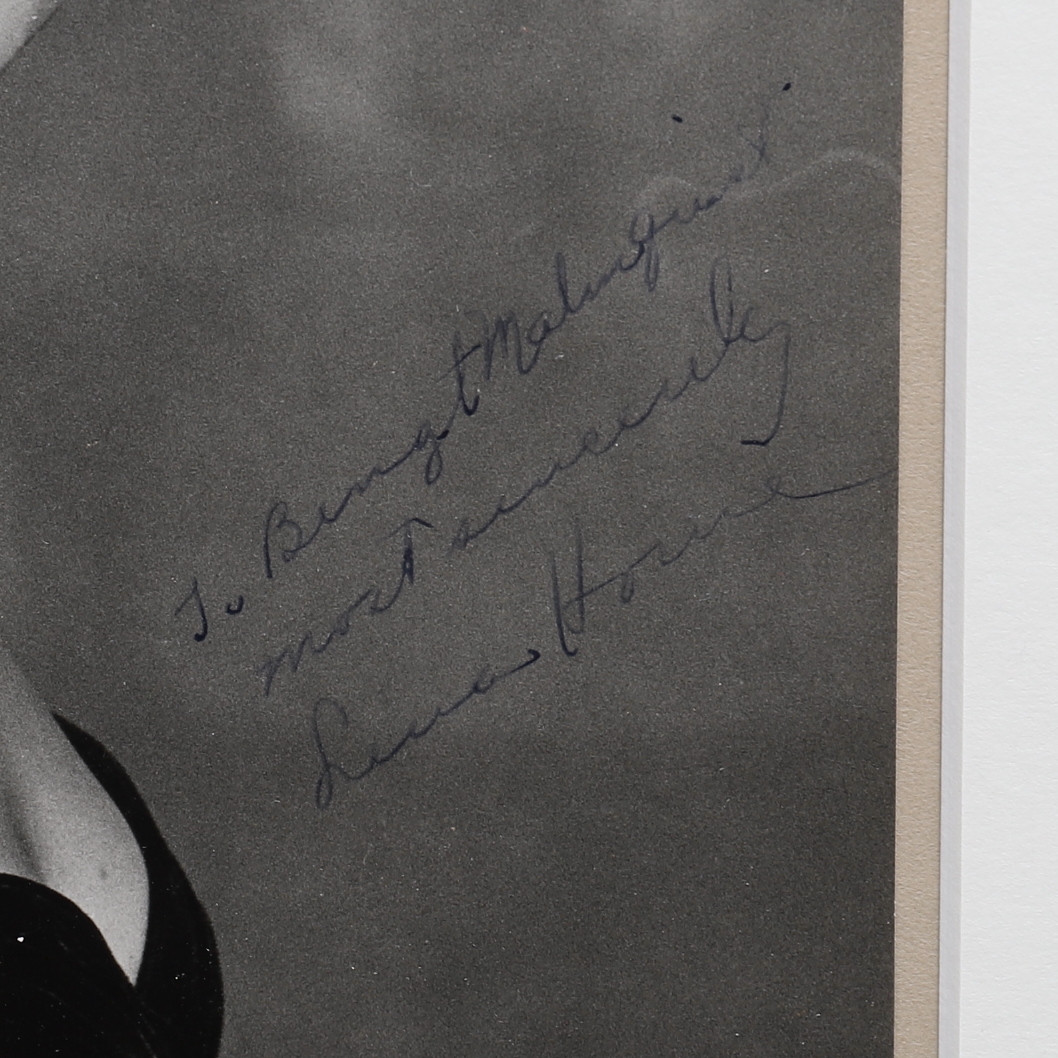 To Bengt Malmquist
most sincerely
Lena Horne